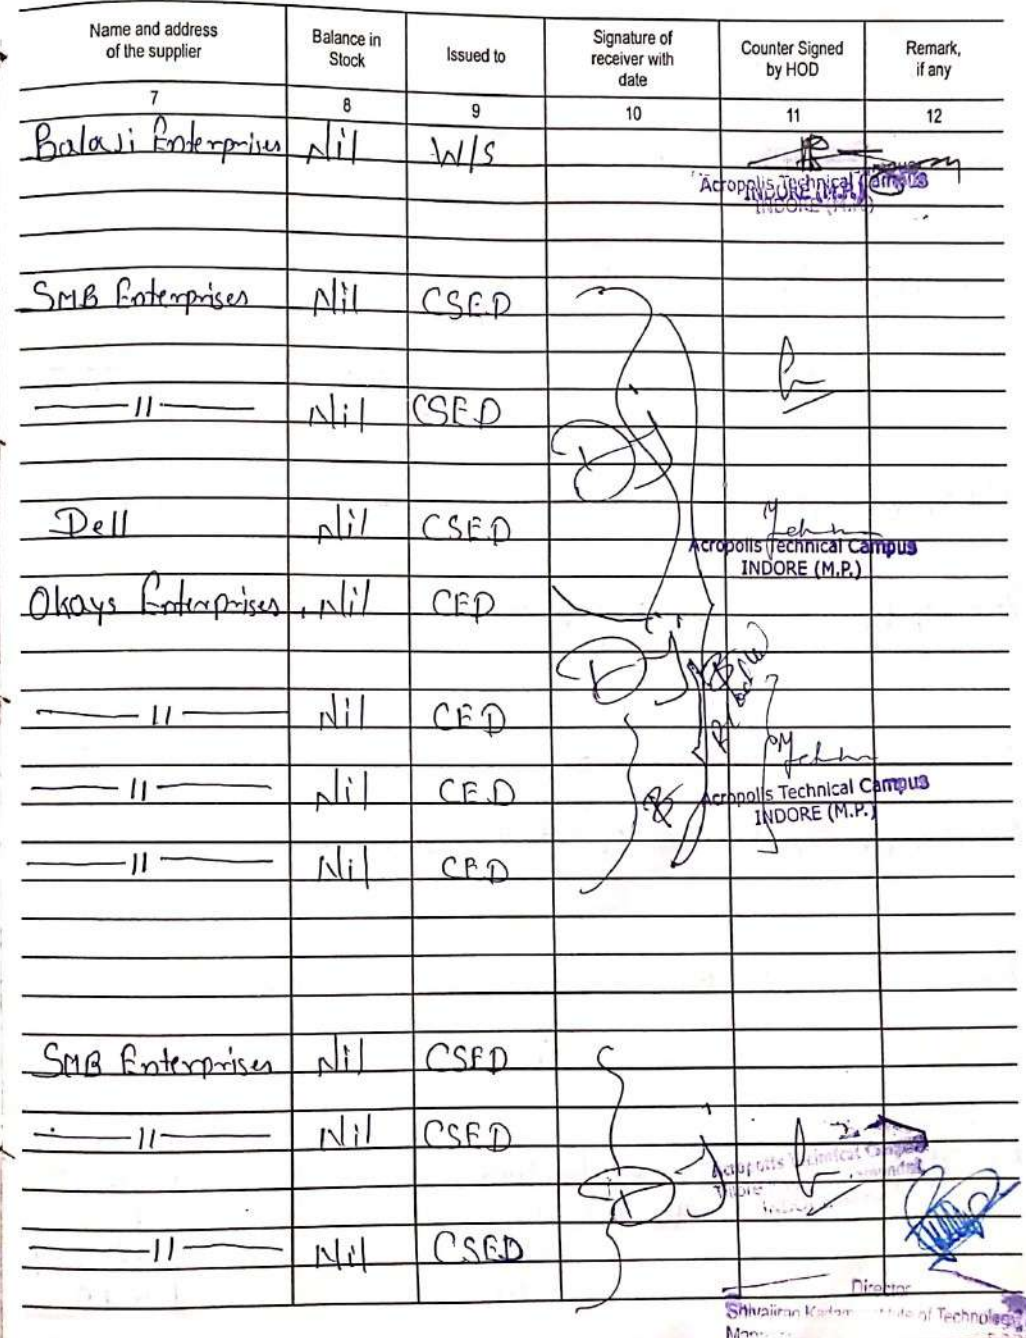 Name and address of the supplier Balance in Stock Issued to Signature of receiver with date Counter Signed by HOD Remark, if any
7 8 9 10 11 12
Balaji Enterprises Nil W/S
Acropolis Technical Campus
INDORE (M.P.)
SMB Enterprises Nil CSED
—— 11 —— Nil CSED
Dell Nil CSED
Acropolis Technical Campus
INDORE (M.P.)
Okays Enterprises, Nil CED
—— 11 —— Nil CED
—— 11 —— Nil CED
Acropolis Technical Campus
INDORE (M.P.)
—— 11 —— Nil CED
SMB Enterprises Nil CSED
—— 11 —— Nil CSED
Acropolis Technical Campus
—— 11 —— Nil CSED
Director
of Technology